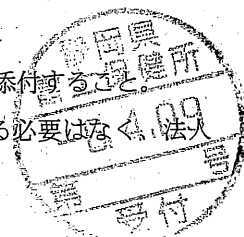 添付すること。
る必要はなく、法人
岡県
保健所
.09
号
受付